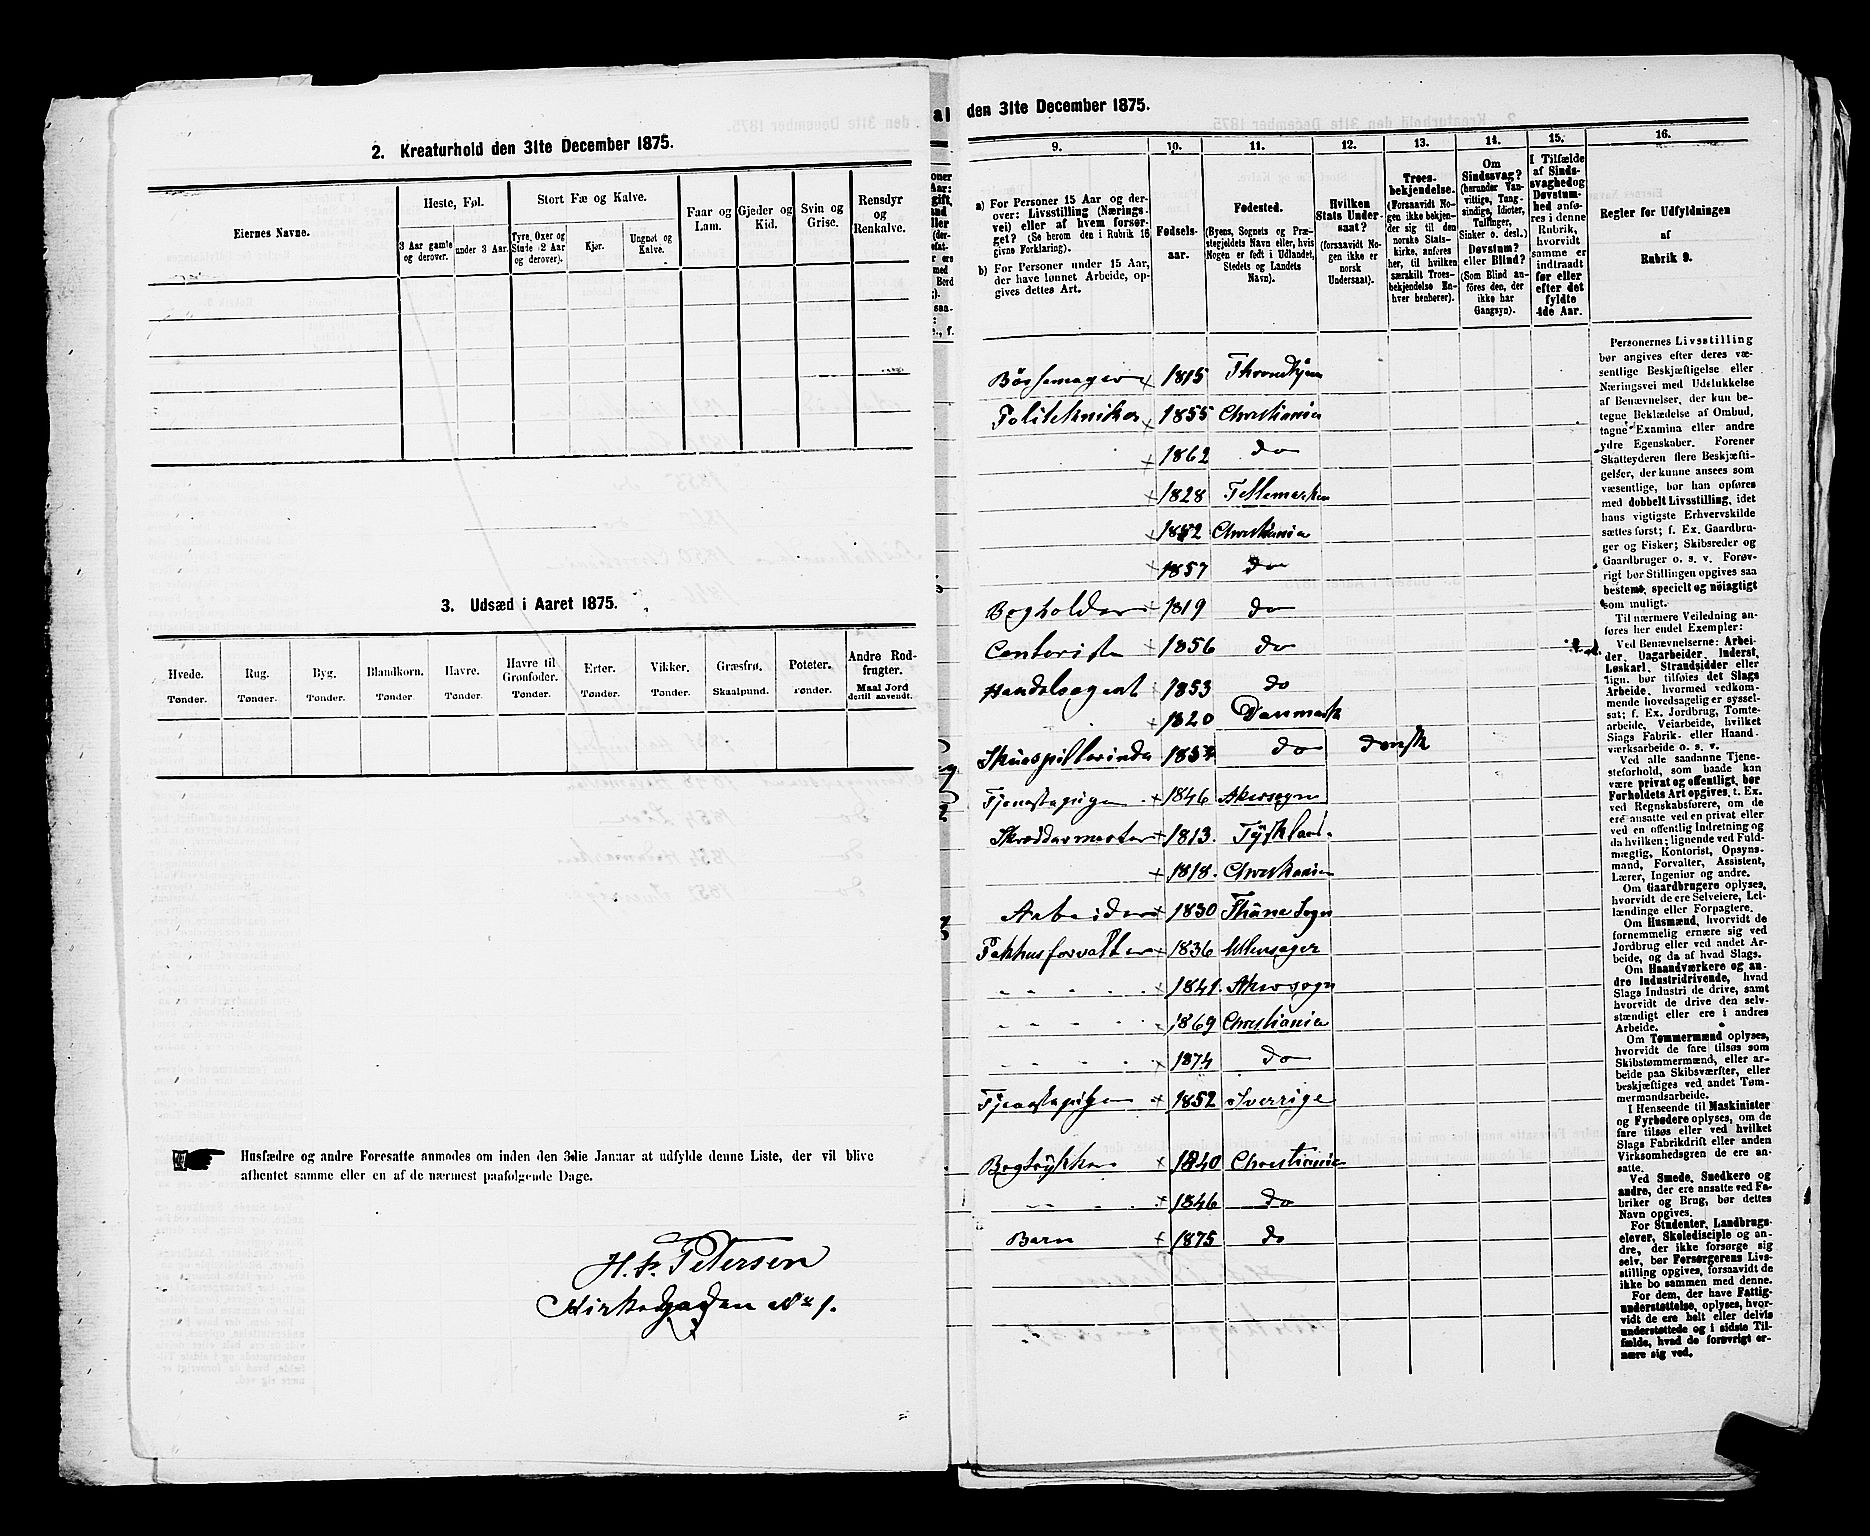 2. Kreaturhold den 31te December 1875.
Eiernes Navne.
Heste, Føl.
Stort Fæ og Kalve.
Faar og Lam.
Gjeder og Kid.
Svin og Grise.
Rensdyr og Renkalve.
3 Aar gamle og derover.
under 3 Aar.
Tyre, Oxer og Stude (2 Aar og derover).
Kjør.
Ungnøt og Kalve.
3. Udsæd i Aaret 1875.
Hvede. Rug. Byg. Blandkorn. Havre. Havre til Grønfoder. Erter. Vikker. Græsfrø. Poteter. Andre Rodfrugter.
Tønder. Tønder. Tønder. Tønder. Tønder. Tønder. Tønder. Tønder. Skaalpund. Tønder. Maal Jord dertil anvendt.
Husfædre og andre Foresatte anmodes om inden den 3die Januar at udfylde denne Liste, der vil blive
afhentet samme eller en af de nærmest paafølgende Dage.
H. P. Petersen
Kirkegaden No 1.
den 31te December 1875.
9. 10. 11. 12. 13. 14. 15. 16.
a) For Personer 15 Aar og derover: Livsstilling (Næringsvei) eller af hvem forsørget? (Se herom den i Rubrik 16 givne Forklaring).
b) For Personer under 15 Aar, der have lønnet Arbeide, opgives dettes Art.
Fødselsaar.
Fødested.
(Byens, Sognets og Præstegjeldets Navn eller, hvis Nogen er født i Udlandet, Stedets og Landets Navn).
Hvilken Stats Undersaat?
(forsaavidt Nogen ikke er norsk Undersaat).
Troesbekjendelse.
(Forsaavidt Nogen ikke bekjender sig til den norske Statskirke, anføres her, til hvilken særskilt Troesbekjendelse Enhver henhører).
Om Sindssvag?
(herunder Vanvittige, Tungsindige, Idioter, Tullinger, Sinker o. desl.)
Døvstum? eller Blind?
(Som Blind anføres den, der ikke har Gangsyn).
I Tilfælde af Sindssvaghed og Døvstumhed anføres i denne Rubrik, hvorvidt samme er indtraadt før eller efter det fyldte 4de Aar.
Regler for Udfyldningen
af
Rubrik 9.
Bøssemager 1815 Throndhjem
Politekniker 1855 Christiania
1862 do
1828 Tellemarken
1852 Christiania
1857 do
Bogholder 1819 do
Contorist 1856 do
Handelsagent 1853 do
1820 Danmark
Skuespillerinde 1854 do dansk
Tjenestepige 1846 Akersogn
Skræddermester 1813. Tyskland
1818. Christiania
Arbeider 1830 Thune Sogn
Pakhusforvalter 1836 Ullensager
1841. Akersogn
1869 Christiania
1874 do
Tjenestepige 1852 Sverrige
Bogtrykker 1840 Christiania
1846 do
Barn 1875 do
Personernes Livsstilling
bør angives efter deres væsentlige
Beskjæftigelse eller
Næringsvei med Udelukkelse
af Benævnelser, der kun betegne
Beklædelse af Ombud,
tagne Examina eller andre
ydre Egenskaber. Forener
Skatteyderen flere Beskjæftigelser,
der kunne ansees som
væsentlige, bør han opføres
med dobbelt Livsstilling, idet
hans vigtigste Erhvervskilde
sættes først; f. Ex. Gaardbruger
og Fisker; Skibsreder og
Gaardbruger o. s. v. Forøvrigt
bør Stillingen opgives saa
bestemt, specielt og nøiagtigt
som muligt.
Til nærmere Veiledning anføres
her endel Exempler:
Ved Benævnelserne: Arbeider,
Dagarbeider, Inderst,
Løskarl, Strandsidder eller
lign. bør tilføies det Slags
Arbeide, hvormed vedkommende
hovedsagelig er sysselsat;
f. Ex. Jordbrug, Tomtearbeide,
Veiarbeide, hvilket
Slags Fabrik- eller Haandværksarbeide
o. s. v.
Ved alle saadanne Tjenesteforhold,
som baade kan
være privat og offentligt, bør
Forholdets Art opgives, t. Ex.
ved Regnskabsførere, om de
ere ansatte ved en privat eller
ved en offentlig Indretning og
da hvilken; lignende ved Fuldmægtig,
Kontorist, Opsynsmand,
Forvalter, Assistent,
Lærer, Ingeniør og andre.
Om Gaardbrugere oplyses,
hvorvidt de ere Selveiere, Leilændinge
eller Forpagtere.
Om Husmænd, hvorvidt de
fornemmelig ernære sig ved
Jordbrug eller ved andet Arbeide,
og da af hvad Slags.
Om Haandværkere og andre
Industridrivende, hvad
Slags Industri de drive, samt
hvorvidt de drive den selvstændigt
eller ere i andres
Arbeide.
Om Tømmermænd oplyses,
hvorvidt de fare tilsøs som
Skibstømmermænd, eller arbeide
paa Skibsværfter, eller
beskjæftiges ved andet Tømmermandsarbeide.
I Henseende til Maskinister
og Fyrbødere oplyses, om de
fare tilsøs eller ved hvilket
Slags Fabrikdrift eller anden
Virksomhedsgren de ere ansatte.
Ved Smede, Snedkere og
andre, der ere ansatte ved Fabriker
og Brug, bør dettes
Navn opgives.
For Studenter, Landbrugselever,
Skoledisciple og andre,
der ikke forsørge sig
selv, bør Forsørgerens Livsstilling
opgives, forsaavidt de
ikke bo sammen med denne.
For dem, der have Fattigunderstøttelse,
oplyses, hvorvidt
de ere helt eller delvis
understøttede og i sidste Tilfælde,
hvad de forøvrigt ernære
sig ved.